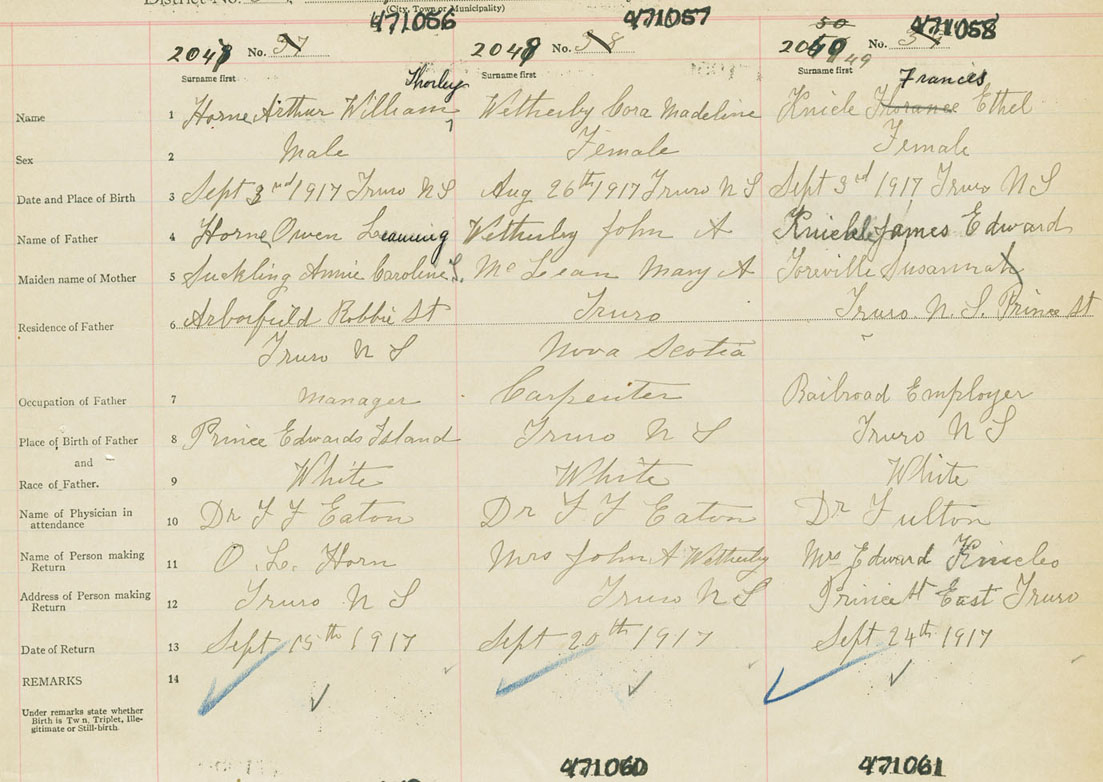 District No.
(City, Town or Municipality)
471056 471057 471058
50
2048 No. 37 2048 No. 38 2049 49 No.
Surname first Surname first Surname first
Thorley Frances
Name 1 Horne Arthur William Wetherby Cora Madeline Knicle Ethel
Sex 2 Male Female Female
Date and Place of Birth 3 Sept 3rd 1917 Truro N S Aug 26th 1917 Truro N S Sept 3rd 1917 Truro N S
Name of Father 4 Horne Owen Leaming Wetherby John A Knickle James Edward
Maiden name of Mother 5 Suckling Annie Caroline L. McLean Mary A Toreville Susannah
Residence of Father 6 Arborfield Robbie St Truro Truro. N. S. Prince St
Truro N S Nova Scotia
Occupation of Father 7 Manager Carpenter Railroad Employer
Place of Birth of Father 8 Prince Edwards Island Truro N S Truro N S
and
Race of Father. 9 White White White
Name of Physician in
attendance 10 Dr F F Eaton Dr F F Eaton Dr Fulton
Name of Person making
Return 11 O. L. Horn Mrs John A Wetherby Mrs Edward Knicles
Address of Person making
Return 12 Truro N S Truro N S Prince St East Truro
Date of Return 13 Sept 15th 1917 Sept 20th 1917 Sept 24th 1917
REMARKS 14
Under remarks state whether
Birth is Twn, Triplet, Ille-
gitimate or Still-birth.
471060 471061